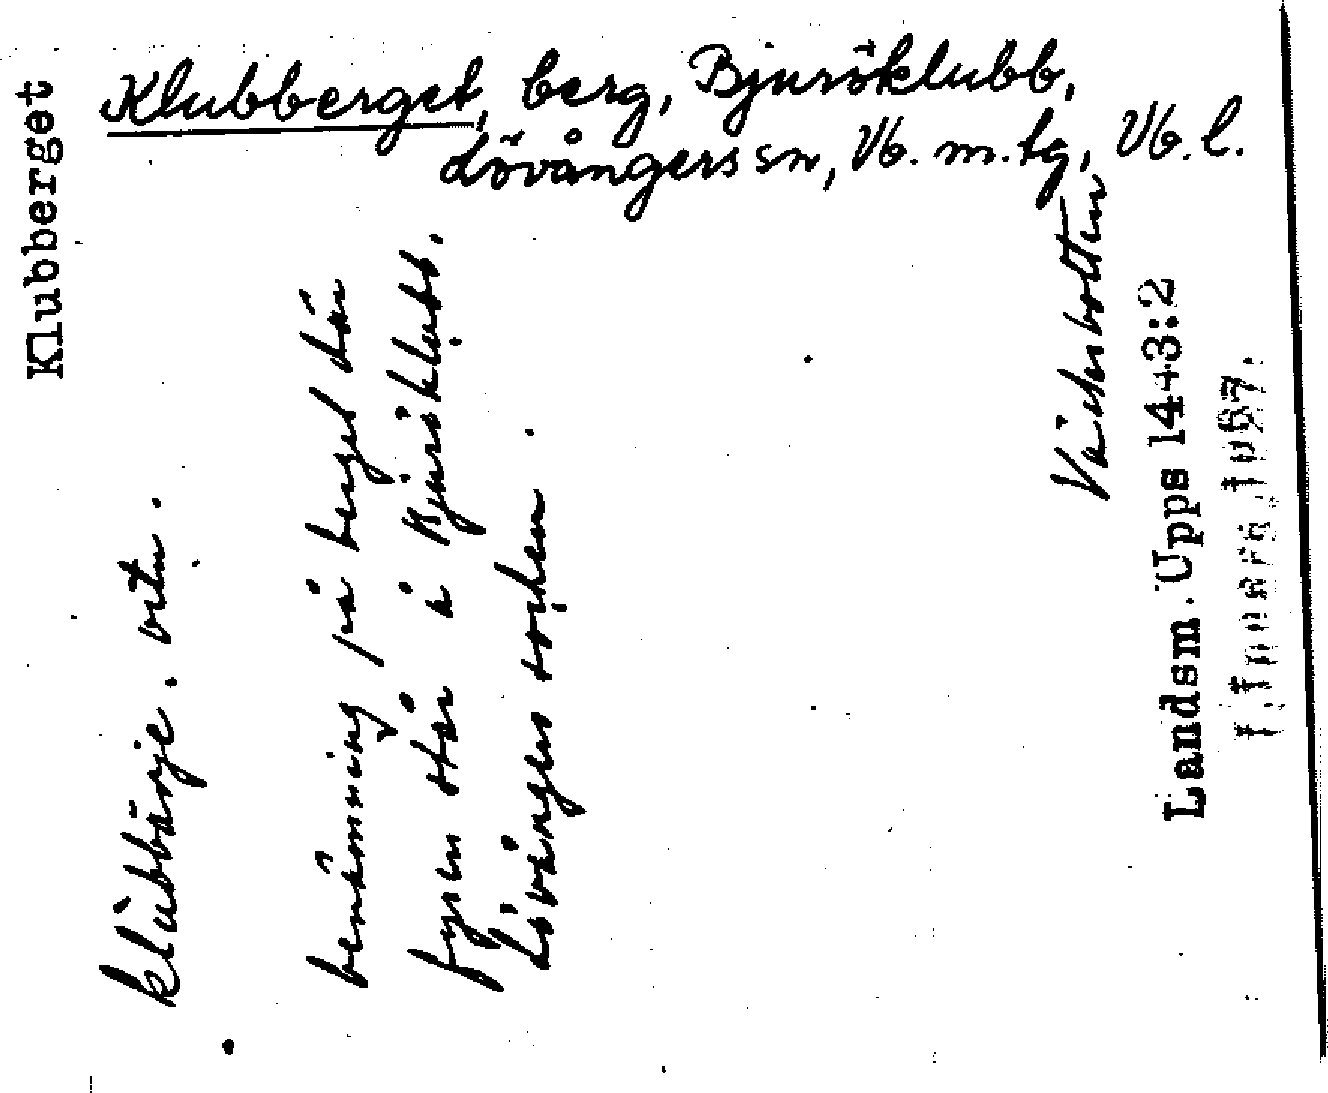 Klubberget
Klubberget, berg, Bjuröklubb,
Lövångers sn, Vb. m. tg, Vb. l.
klubbärje. ortn.
benämning på berget där
fyren står å Bjuröklubb.
Lövångers socken
Västerbotten
Landsm. Upps 1443:2